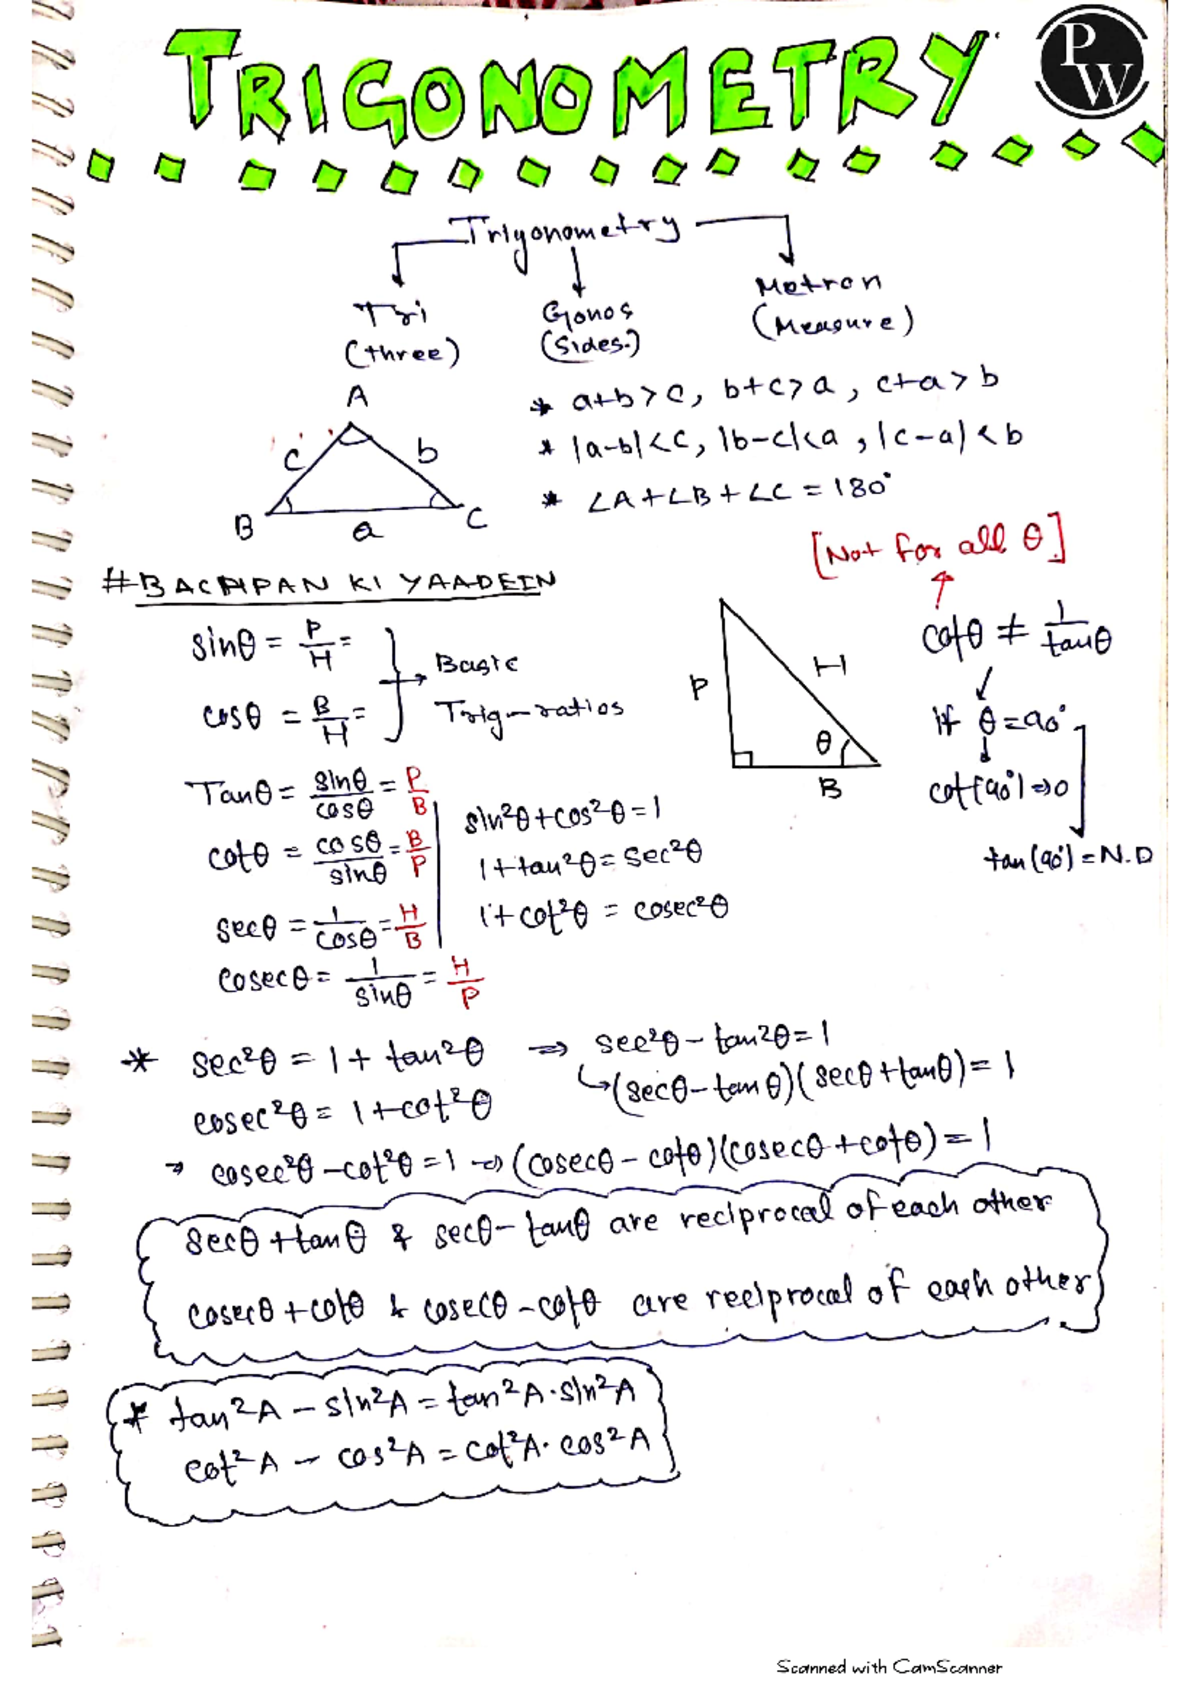 TRIGONOMETRY
PW
Trigonometry
Tri
(three)
Gonos
(Sides.)
Metron
(Measure)
A
c
b
B
a
C
* a+b>c, b+c>a, c+a>b
* |a-b|<c, |b-c|<a, |c-a|<b
* ∠A+∠B+∠C = 180°
[Not for all θ]
# BACHPAN KI YAADEIN
sinθ = P/H =
cosθ = B/H =
Basic
Trig-ratios
P
H
θ
B
cotθ ≠ 1/tanθ
If θ=90°
cot(90°)⇒0
tan(90°)=N.D
Tanθ = sinθ/cosθ = P/B
cotθ = cosθ/sinθ = B/P
secθ = 1/cosθ = H/B
cosecθ = 1/sinθ = H/P
sin²θ+cos²θ=1
1+tan²θ=sec²θ
1+cot²θ = cosec²θ
* sec²θ = 1+tan²θ ⇒ sec²θ-tan²θ=1
↳(secθ-tanθ)(secθ+tanθ)=1
cosec²θ = 1+cot²θ
→ cosec²θ-cot²θ=1 ⇒ (cosecθ-cotθ)(cosecθ+cotθ)=1
secθ+tanθ & secθ-tanθ are reciprocal of each other
cosecθ+cotθ & cosecθ-cotθ are reciprocal of each other
* tan²A - sin²A = tan²A·sin²A
cot²A - cos²A = cot²A·cos²A
Scanned with CamScanner